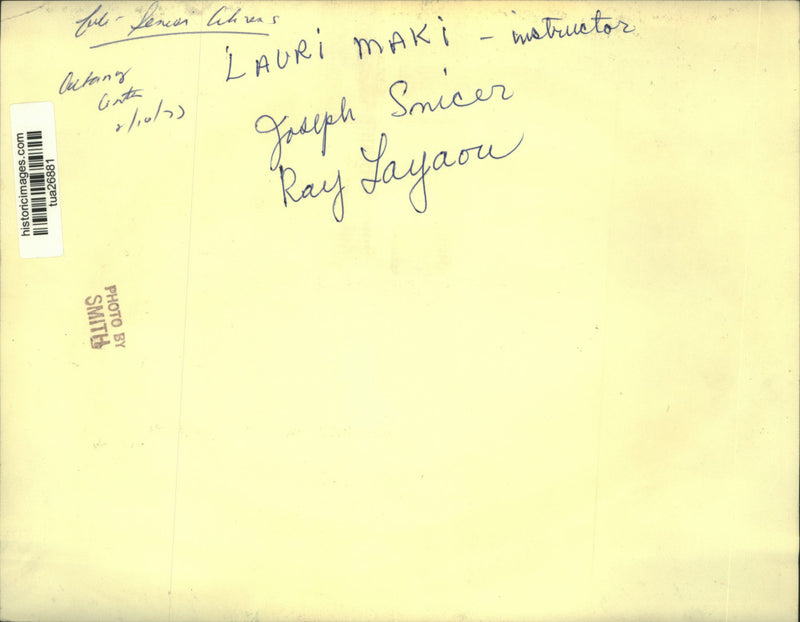 Senior Citizens
LAURI MAKI - instructor
Joseph Snicer
Ray Layaou
2/10/73
historicimages.com
tua26881
PHOTO BY
SMITH